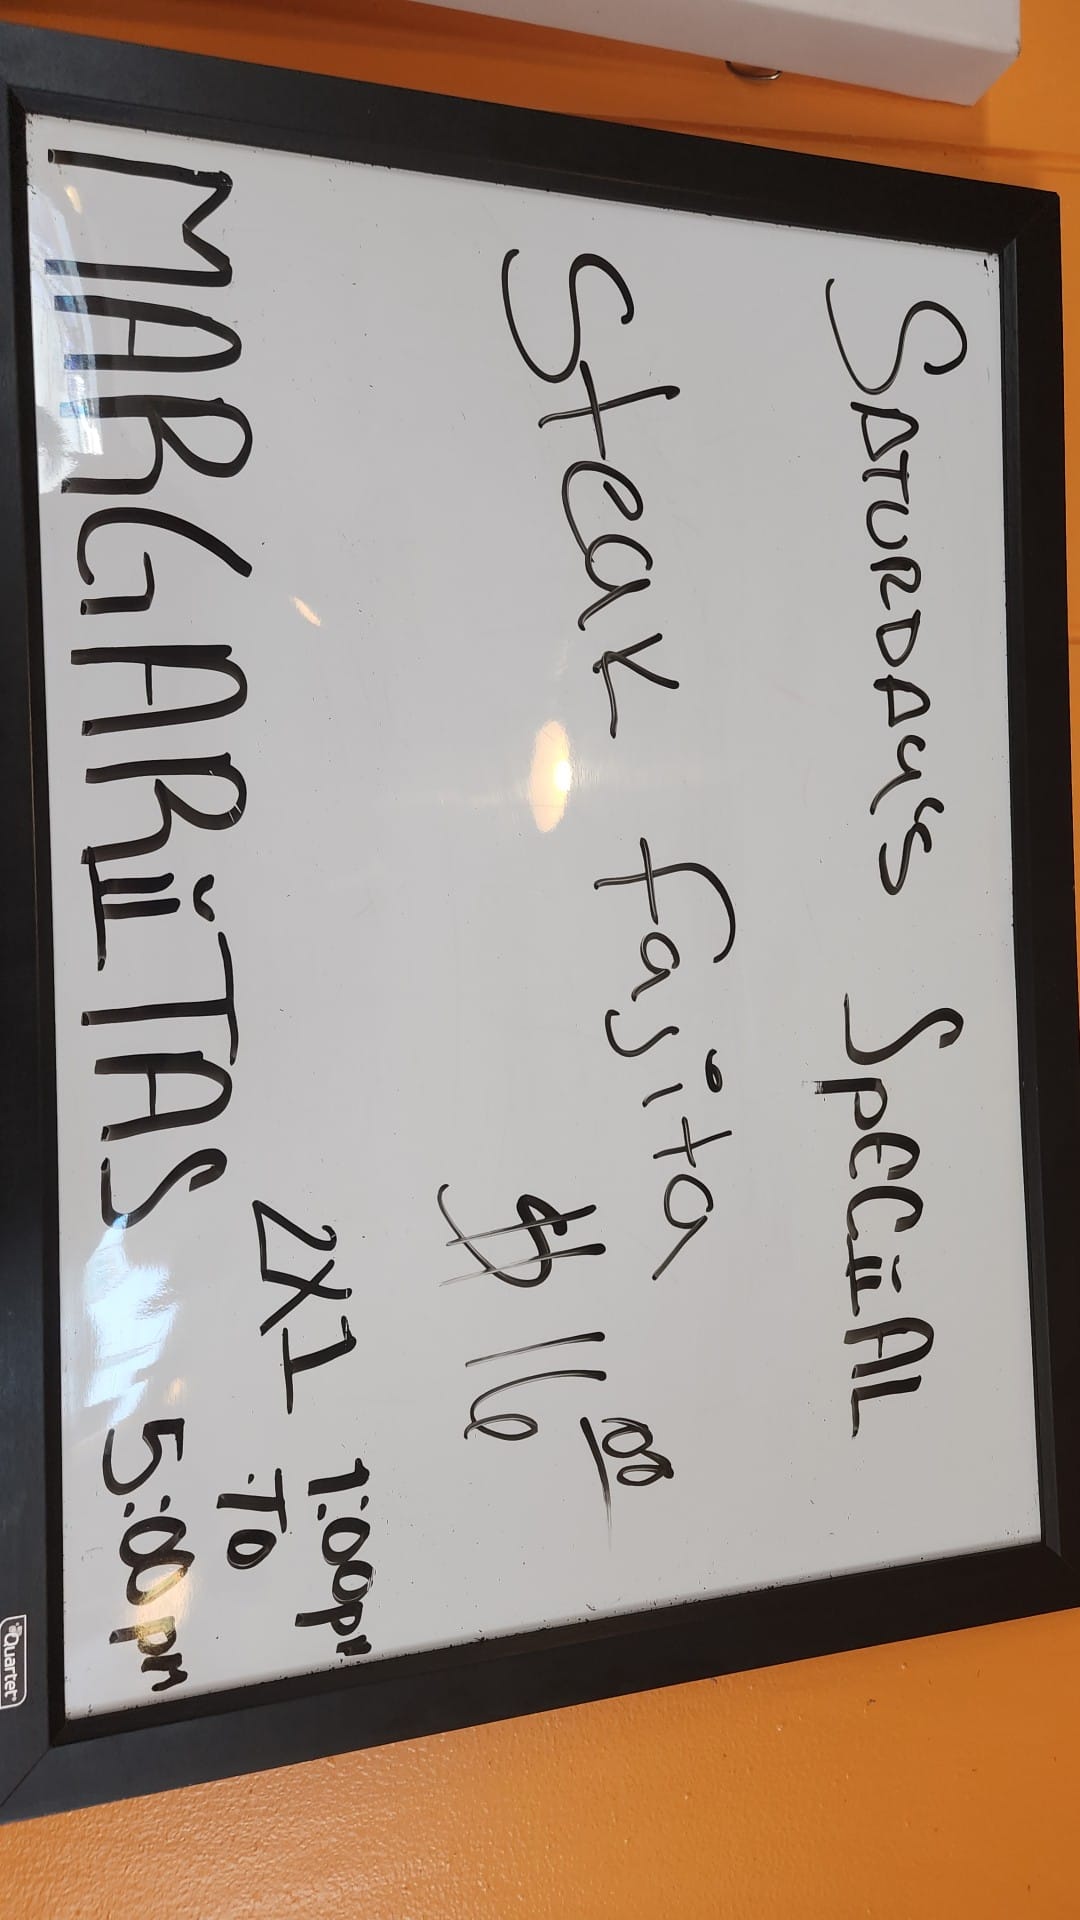 SATURDAY'S SPECIAL
Steak fajita
$ 16.00
MARGARITAS 2X1 1:00pm
TO
5:00 pm
Quartet